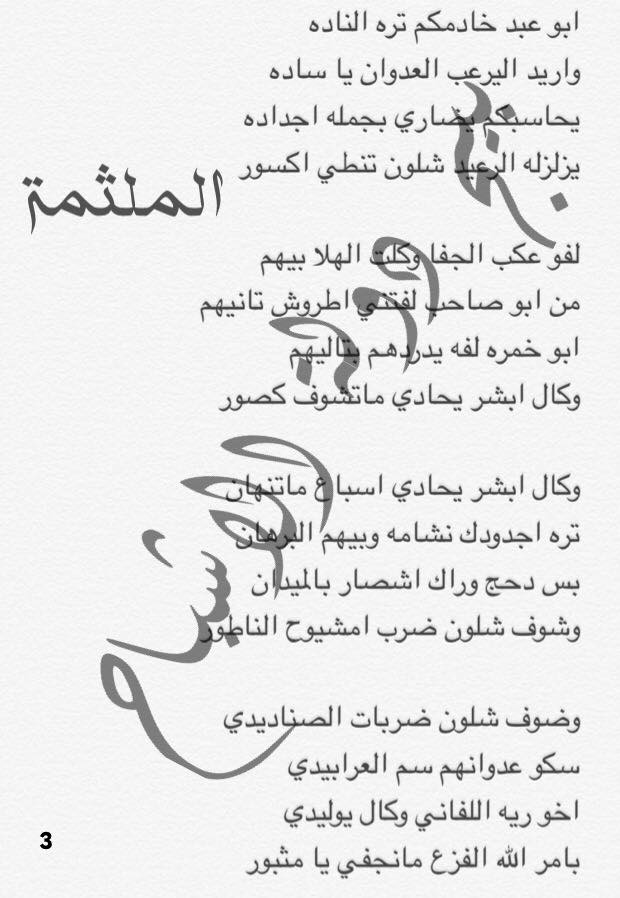 ابو عبد خادمكم تره الناده
واريد اليرعب العدوان يا ساده
يحاسبكم يضاري بجمله اجداده
يزلزله الرعيد شلون تنطي اكسور
الملثمة
لفو عكب الجفا وكلت الهلا بيهم
من ابو صاحب لفتني اطروش تانيهم
ابو خمره لفه يدردهم بتاليهم
وكال ابشر يحادي ماتشوف كصور
وكال ابشر يحادي اسباع ماتنهان
تره اجدودك نشامه وبيهم البرهان
بس دحج وراك اشصار بالميدان
وشوف شلون ضرب امشيوح الناطور
وضوف شلون ضربات الصناديدي
سكو عدوانهم سم العرابيدي
اخو ريه اللفاني وكال يوليدي
بامر الله الفزع مانجفي يا مثبور
الاشباح
3